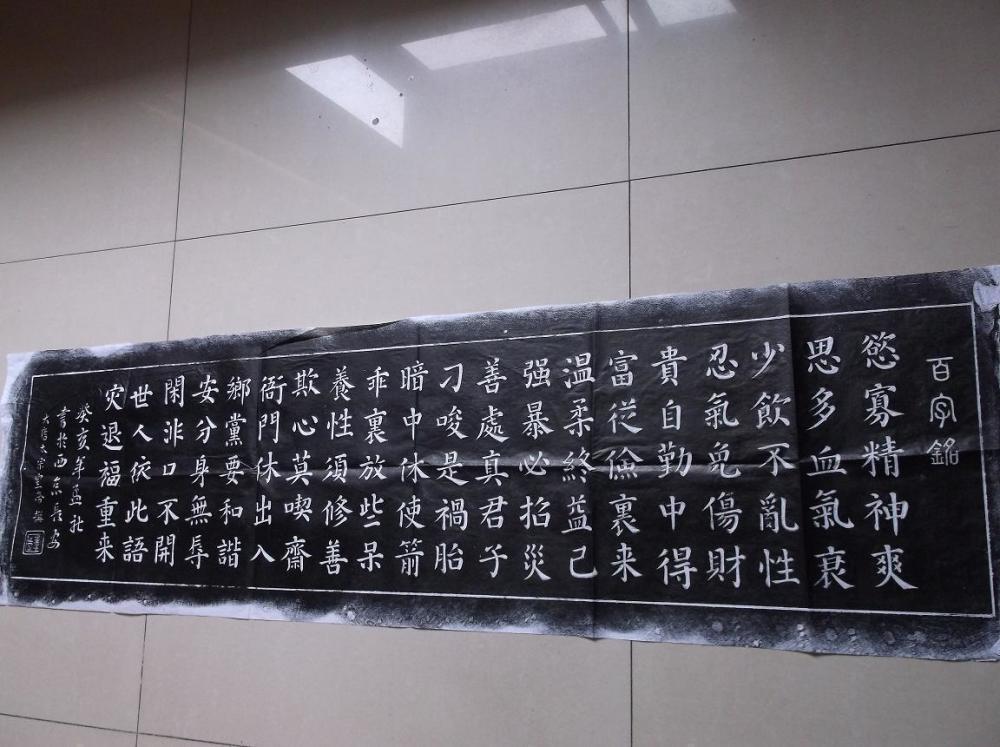 百字銘
慾寡精神爽
思多血氣衰
少飲不亂性
忍氣免傷財
貴自勤中得
富従儉裏来
温柔終益己
强暴必招災
善處真君子
刁唆是禍胎
暗中休使箭
乖裏放些呆
養性須修善
欺心莫喫齋
衙門休出入
鄉黨要和諧
安分身無辱
閑非口不開
世人依此語
灾退福重来
癸亥年孟
書於西京長安
大唐太宗皇帝撰